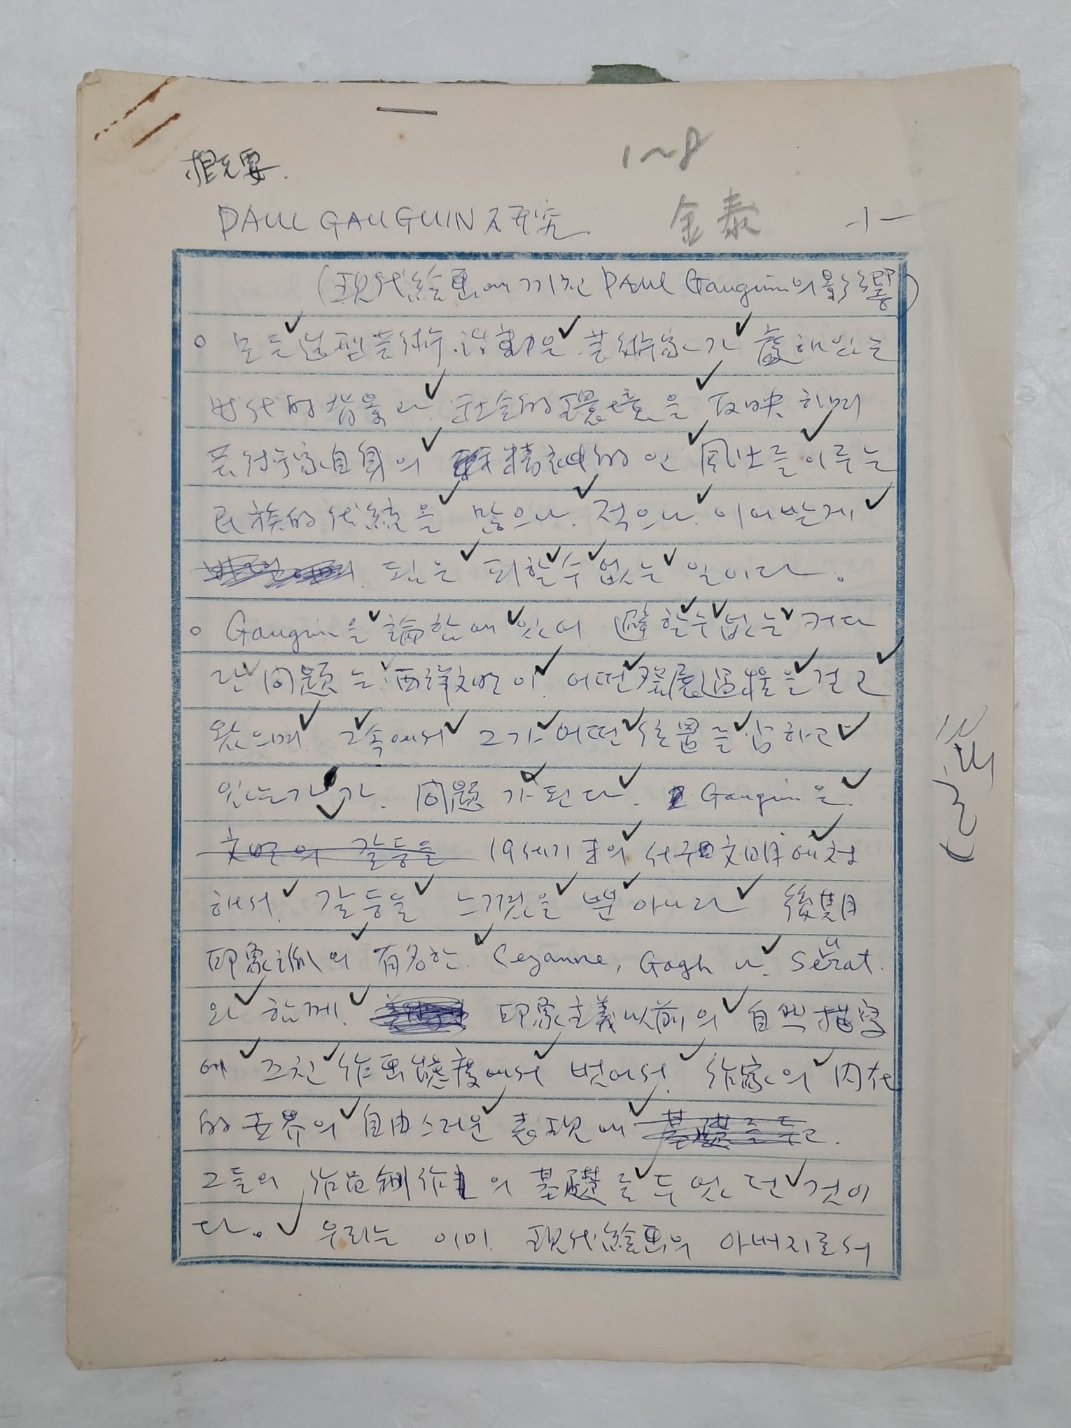 概要.
1~8
PAUL GAUGUIN 研究
金泰
-1-
(現代絵画에 끼친 PAUL Gauguin의 影響)
○ 모든 造型芸術 活動은 芸術家가 處해있는
时代的 背景과 社会的 環境을 反映하며
芸術家自身의 精神的인 風土를 이루는
民族的 伝統을 많으나. 적으나. 이어받게
됨은 피할수 없는 일이다.
○ Gauguin을 論함에 있어 避할수 없는 커다
란 问題는 西洋文明이 어떤 發展過程을 걷고
왔으며 그속에서 그가 어떤 位置를 占하고
있는가가. 问題가 된다. Gauguin은
19세기 末의 서구文明에 対
해서. 갈등을 느꼈을 뿐 아니라 後期
印象派의 有名한. Cezanne, Gogh 나. Seurat.
와 함께. 印象主義以前의 自然描写
에 그친 作画態度에서 벗어서. 作家의 内在
的 世界의 自由스러운 表現에
그들의 制作의 基礎를 두었던 것이
다. 우리는 이미 現代絵画의 아버지로서